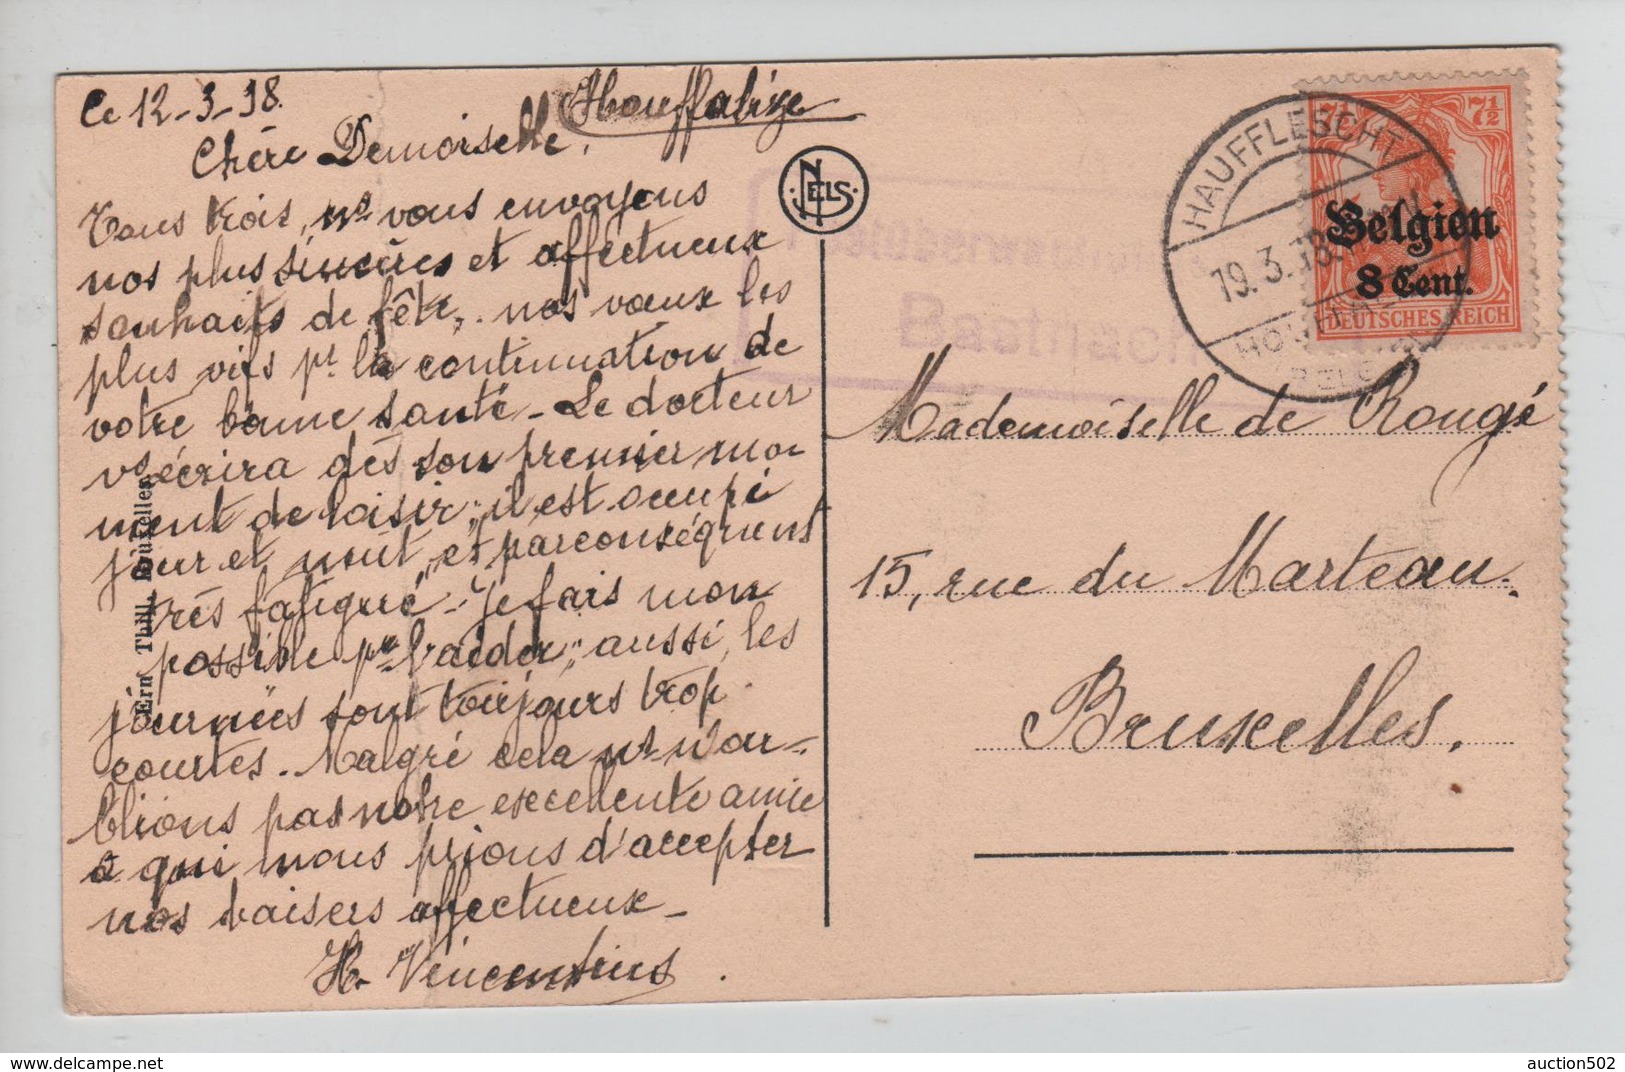 Ce 12-3-18.
Houffalize
Chère Demoiselle,
Tous trois, ns vous envoyons
nos plus sincères et affectueux
souhaits de fête, nos vœux les
plus vifs pr la continuation de
votre bonne santé - Le docteur
vs écrira dès son premier mo-
ment de loisir; il est occupé
jour et nuit, et par conséquent
très fatigué - Je fais mon
possible pr l'aider; aussi, les
journées sont toujours trop
courtes. Malgré cela ns n'ou-
blions pas notre excellente amie
à qui nous prions d'accepter
nos baisers affectueux -
H. Vincentius.
Ern. Thill, Bruxelles
NELS
Postüberwachungs
Bastnach
HAUFFLESCHT
19.3.18
HOUFFA
(BELG
7½ 7½
Belgien
8 Cent.
DEUTSCHES REICH
Mademoiselle de Rougé
15, rue du Marteau.
Bruxelles.
auction502